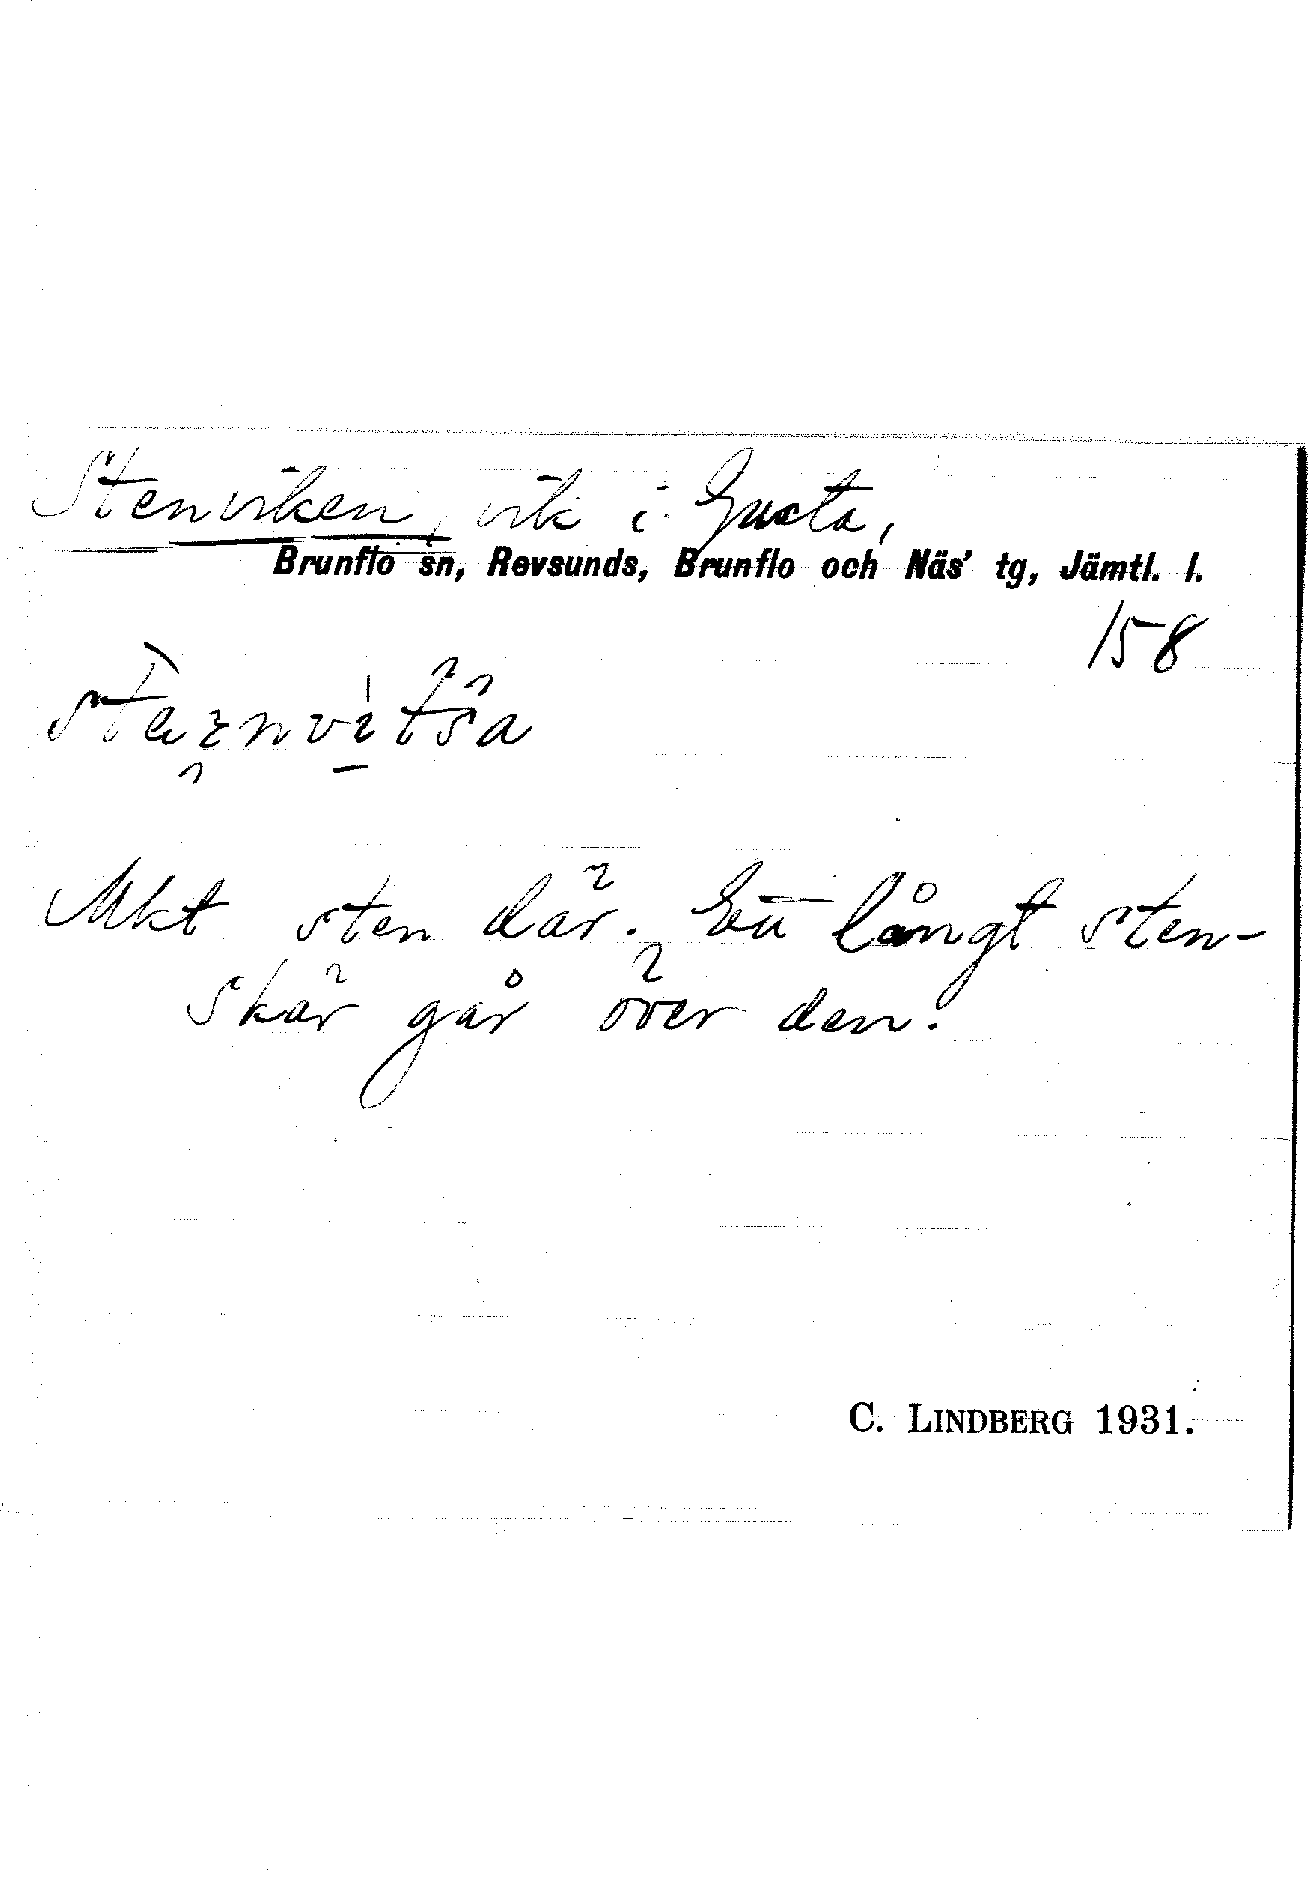 Stenviken, vik i Gusta,
Brunflo sn, Revsunds, Brunflo och Näs' tg, Jämtl. l.
158
Mkt sten där. Ett långt sten-
skär går över den.
C. LINDBERG 1931.